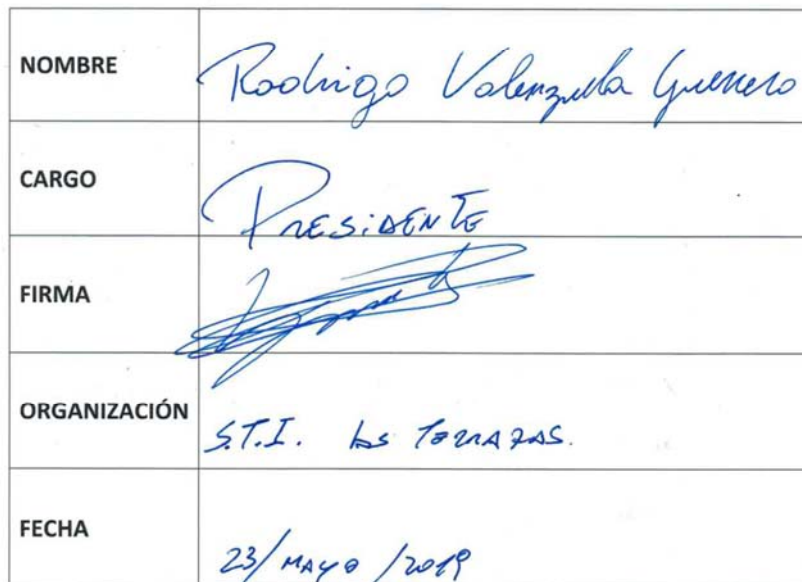 NOMBRE Rodrigo Valenzuela Guerrero
CARGO PRESIDENTE
FIRMA
ORGANIZACIÓN S.T.I. Las TERRAZAS.
FECHA 23/MAYO/2019